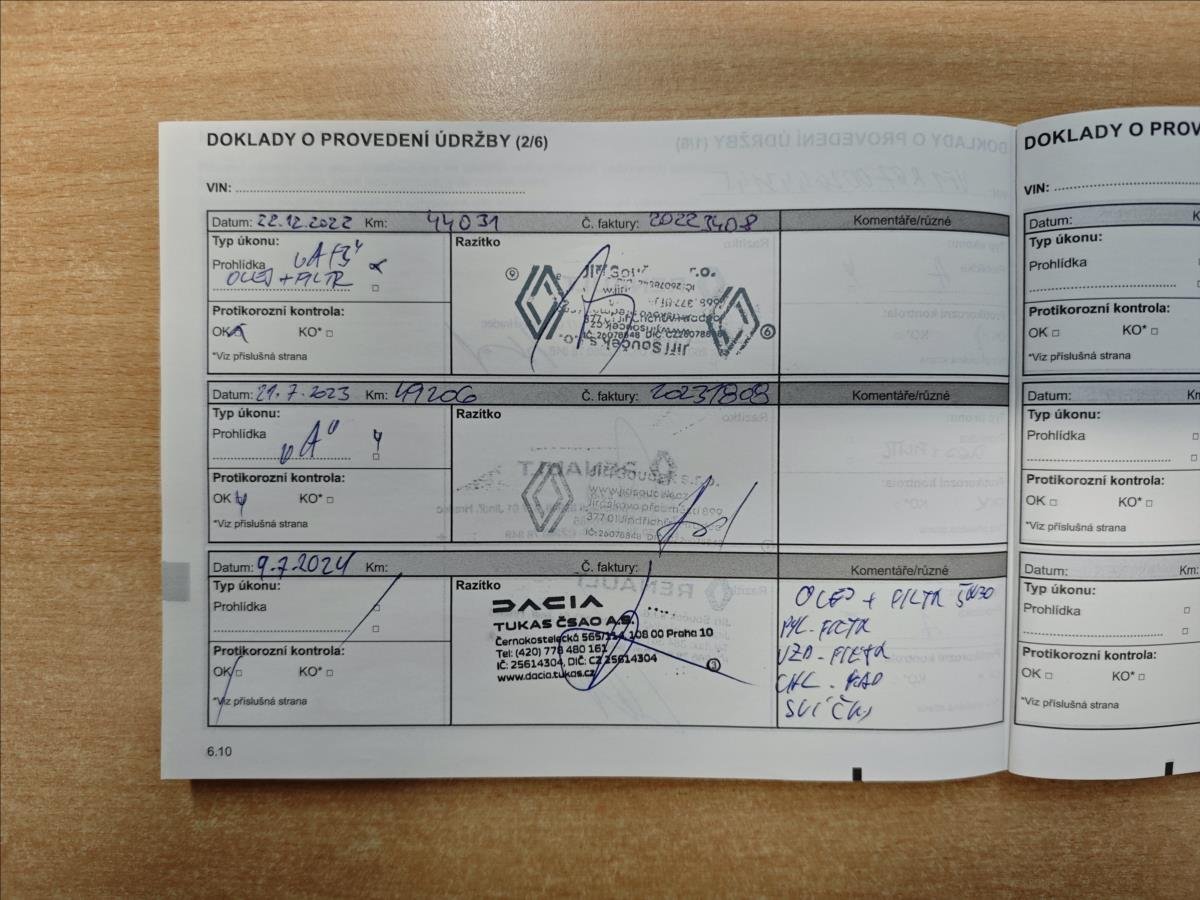 DOKLADY O PROVEDENÍ ÚDRŽBY (2/6)
VIN:
Datum: 22.12.2022 Km: 44031 Č. faktury: 20223408 Komentáře/různé
Typ úkonu:
Prohlídka
OLEJ + FILTR
Razítko
Protikorozní kontrola:
OK KO*
*Viz příslušná strana
Datum: 21.7.2023 Km: 49206 Č. faktury: 20231808 Komentáře/různé
Typ úkonu:
Prohlídka "A"
Razítko
www.jirisoucek.cz
377 01 Jindřichův
IČ: 26078848
Protikorozní kontrola:
OK KO*
*Viz příslušná strana
Datum: 9.7.2024 Km: Č. faktury: Komentáře/různé
Typ úkonu:
Prohlídka
Razítko
DACIA
TUKAS ČSAO A.S.
Černokostelecká 565/114, 108 00 Praha 10
Tel: (420) 778 480 161
IČ: 25614304, DIČ: CZ 25614304
www.dacia.tukas.cz
3
OLEJ + FILTR 5W30
PYL. FILTR
VZD. FILTR
CHL. KAP
SVÍČKY
Protikorozní kontrola:
OK KO*
*Viz příslušná strana
6.10
DOKLADY O PROV
VIN:
Datum:
Typ úkonu:
Prohlídka
Protikorozní kontrola:
OK KO*
*Viz příslušná strana
Datum: Km
Typ úkonu:
Prohlídka
Protikorozní kontrola:
OK KO*
*Viz příslušná strana
Datum: Km:
Typ úkonu:
Prohlídka
Protikorozní kontrola:
OK KO*
*Viz příslušná strana